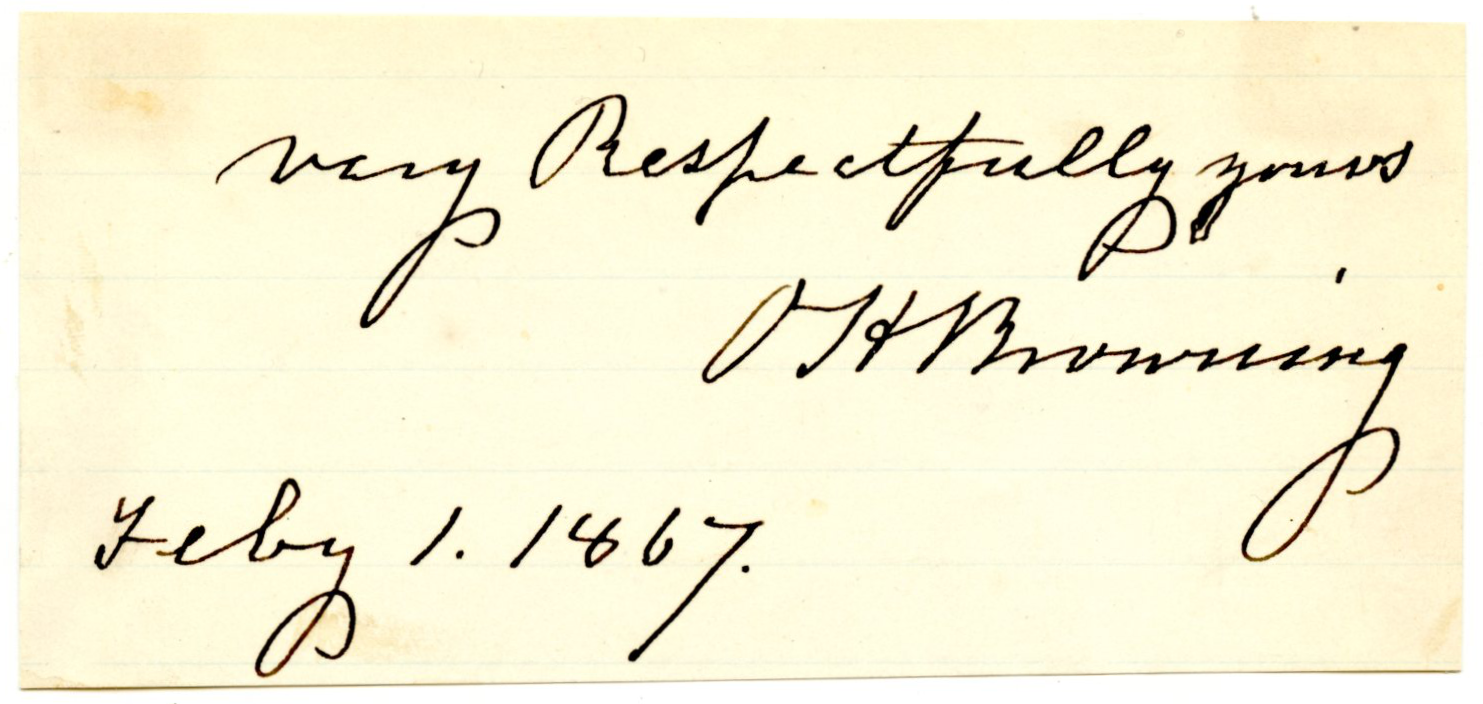 very Respectfully yours
O H Browning
Feby 1. 1867.